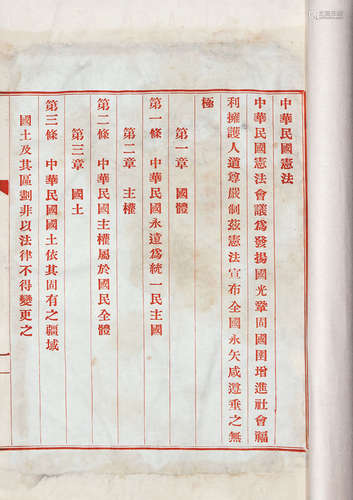 中華民國憲法
中華民國憲法會議為發揚國光鞏固國圉增進社會福
利擁護人道尊嚴制茲憲法宣布全國永矢咸遵垂之無
極
第一章 國體
第一條 中華民國永遠為統一民主國
第二章 主權
第二條 中華民國主權屬於國民全體
第三章 國土
第三條 中華民國國土依其固有之疆域
國土及其區劃非以法律不得變更之